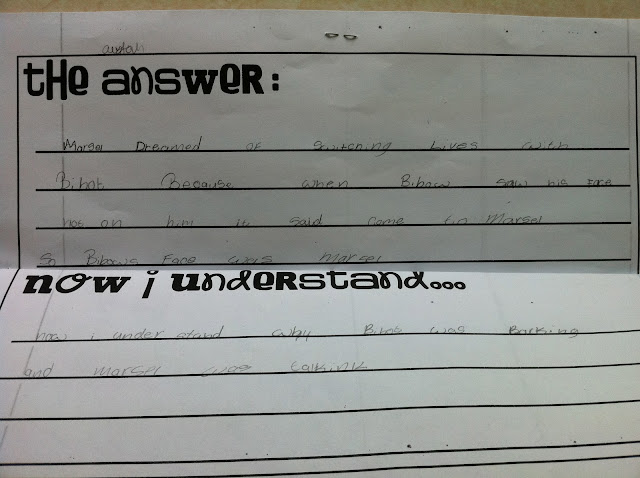 THE ANSWER:
Marsel Dreamed of switching Lives with
Because when Bibow saw his face
on him it said Come in Marsel
So Bibows Face was Marsel
now i understand...
now i under stand why Bibos was Barking
and marsel was talkink